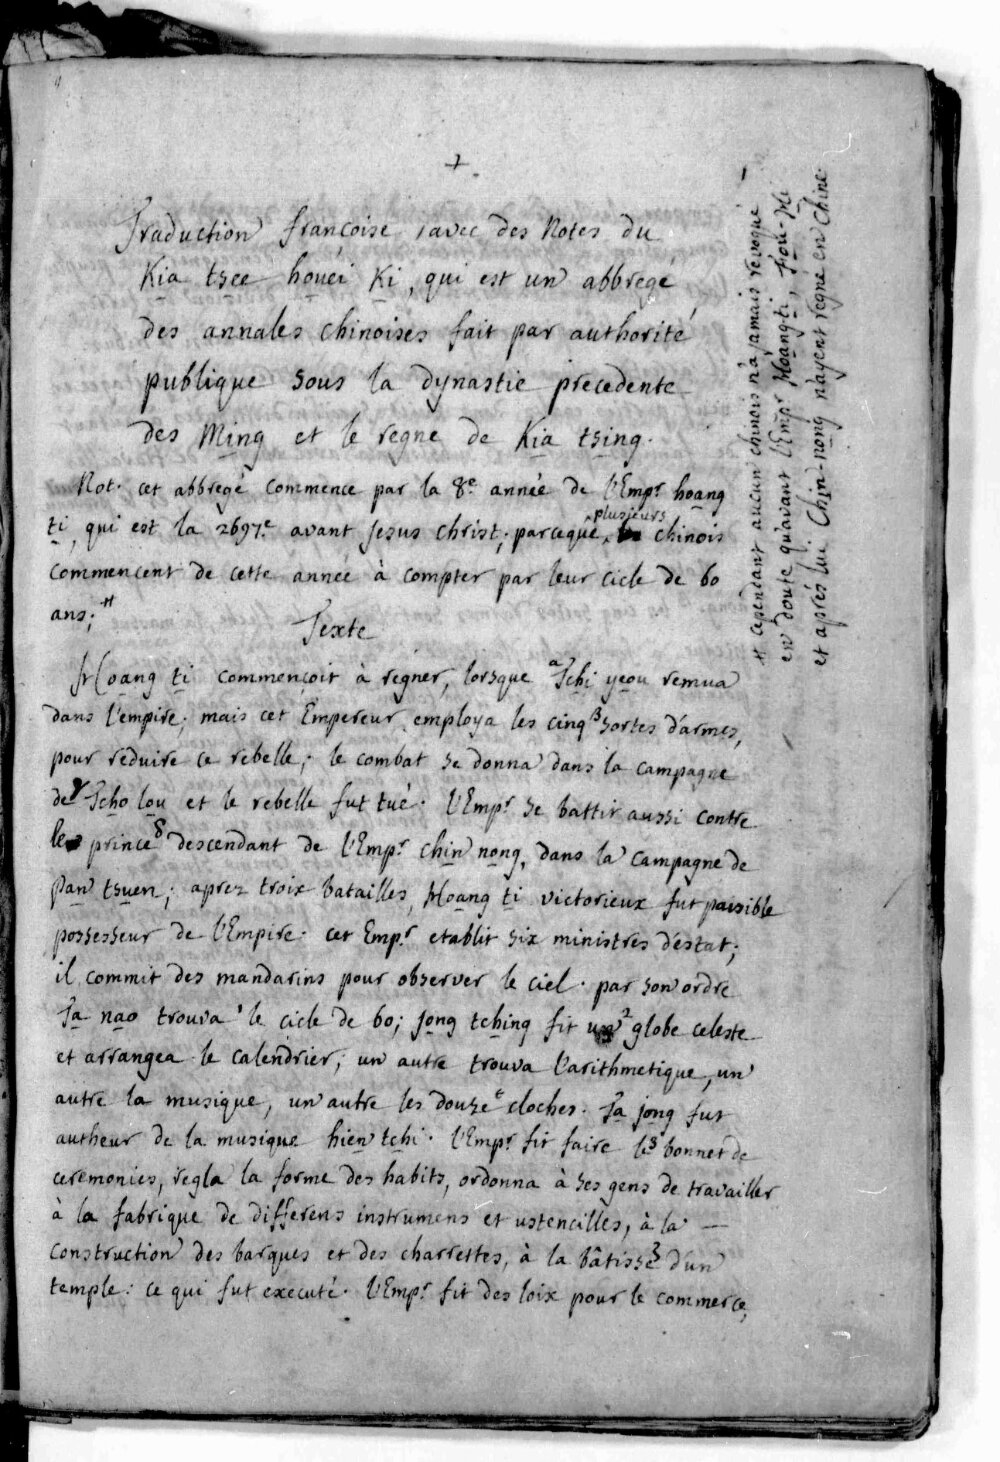 +
Traduction françoise, avec des Notes du
Kia tsee houéi Ki, qui est un abbregé
des annales chinoises fait par authorité
publique sous la dynastie precedente
des Ming et le regne de Kia tsing.
Not. cet abbregé commence par la 8.e année de l'Emp.r hoang
ti, qui est la 2697.e avant Jesus christ; parceque plusieurs chinois
commencent de cette année à compter par leur cicle de 60
ans; #
Texte
Hoang ti commençoit à régner, lorsque a Tchi yeou remua
dans l'empire; mais cet Empereur employa les cinq β sortes d'armes,
pour réduire ce rebelle; le combat se donna dans la campagne
de γ Tcho lou et le rebelle fut tué. l'Emp.r se battit aussi contre
le prince δ descendant de l'Emp.r chin nong, dans la campagne de
Pan tsuen; aprez troix batailles, Hoang ti victorieux fut paisible
possesseur de l'Empire. cet Emp.r etablit six ministres d'estat;
il commit des mandarins pour observer le ciel. par son ordre
Ta nao trouva ' le cicle de 60; Jong tching fit un 2 globe celeste
et arrangea le calendrier; un autre trouva l'arithmetique, un
autre la musique, un autre les douze ε cloches. Ta jong fut
autheur de la musique hien tchi. l'Emp.r fit faire le 3 bonnet de
ceremonies, regla la forme des habits, ordonna à ses gens de travailler
à la fabrique de differens instrumens et ustencilles, à la —
construction des barques et des charrettes, à la bâtisse ζ d'un
temple: ce qui fut executé. l'Emp.r fit des loix pour le commerce,
# cependant aucun chinois n'a jamais revoqué
en doute qu'avant l'Emp.r Hoang-ti, Fou-Hi
et aprés lui Chin-nong n'ayent regné en Chine.